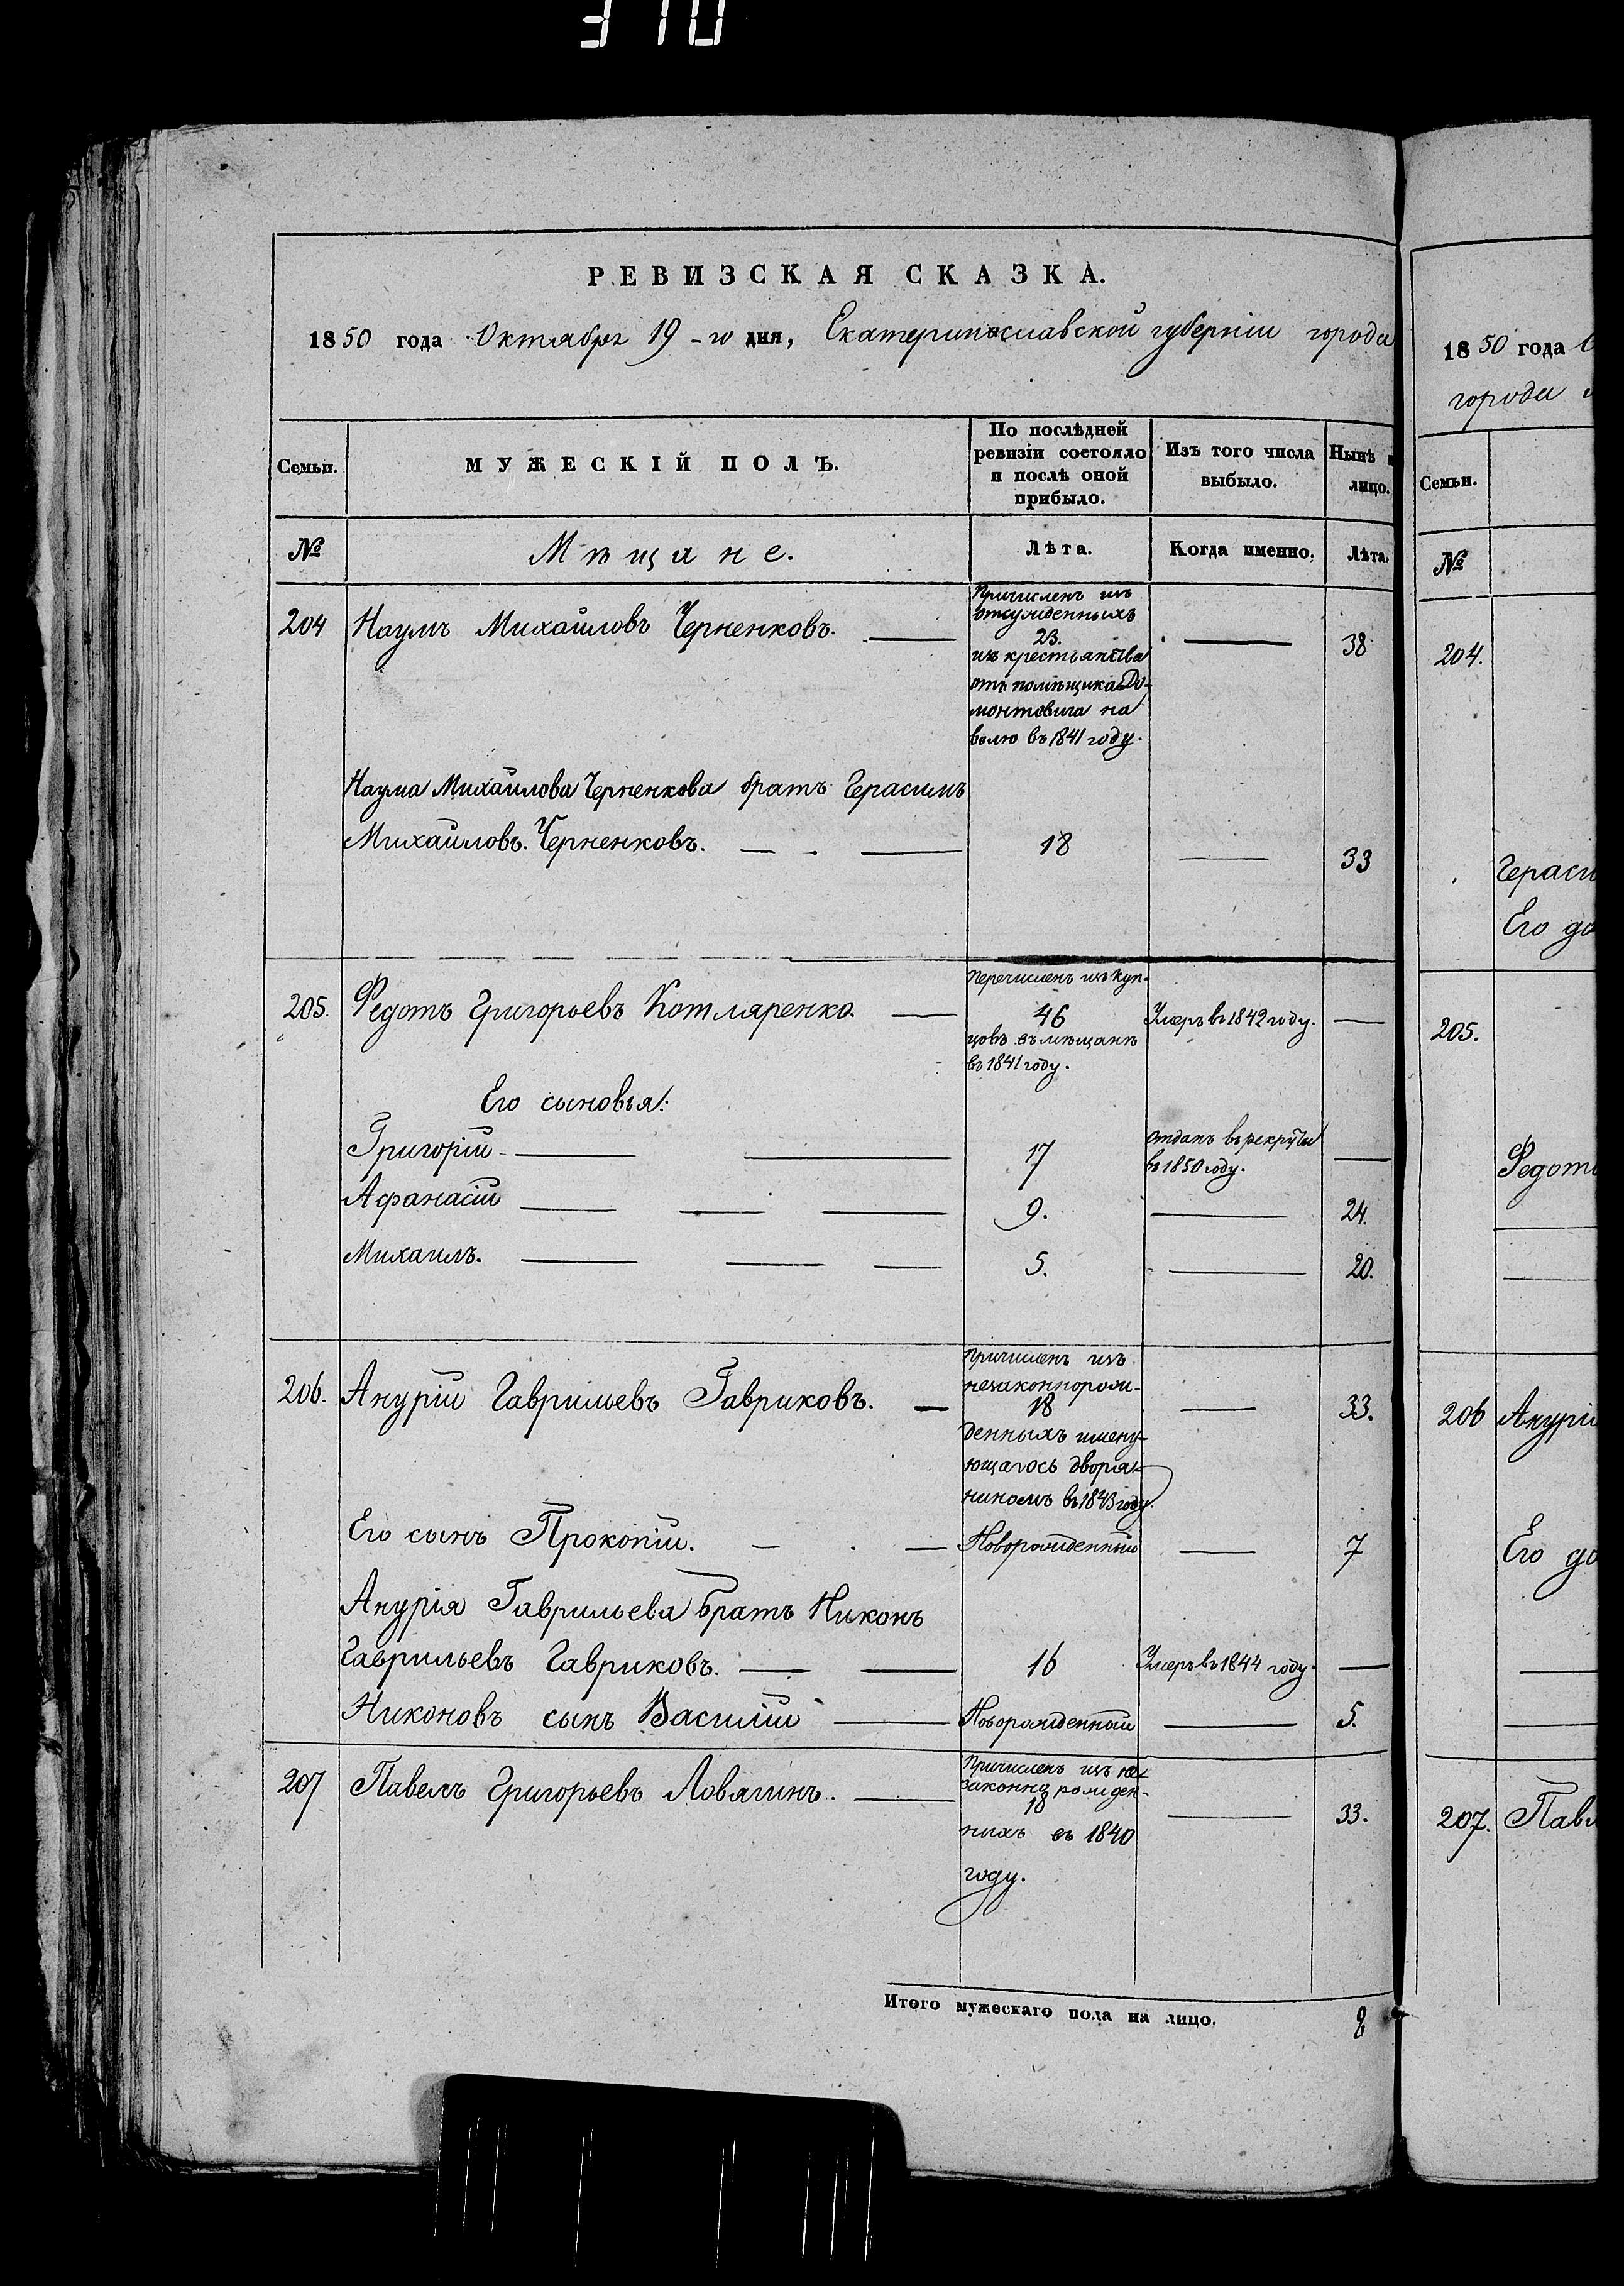 310
РЕВИЗСКАЯ СКАЗКА.
1850 года Октября 19-го дня, Екатеринославской губерніи города
Семьи.
МУЖЕСКІЙ ПОЛЪ.
По послѣдней
ревизіи состояло
и послѣ оной
прибыло.
Изъ того числа
выбыло.
Нынѣ н
лицо.
№
Мѣщане.
Лѣта.
Когда именно.
Лѣта.
204
Наумъ Михайловъ Черненковъ.
Причисленъ изъ
отсужденныхъ
23.
изъ крестьянства
отъ помѣщика До-
монтовича на
волю въ 1841 году.
38
Наума Михайлова Черненкова братъ Герасимъ
Михайловъ Черненковъ.
18
33
205.
Федотъ Григорьевъ Котляренко.
Перечисленъ изъ куп-
46
цовъ въ мѣщане
въ 1841 году.
Умеръ въ 1842 году.
Его сыновья:
Григорій
17
Отданъ въ рекруты
въ 1850 году.
Афанасій
9.
24.
Михаилъ.
5.
20.
206.
Анурій Гаврильевъ Гавриковъ.
Причисленъ изъ
незаконнорож-
18
денныхъ имену-
ющагось дворя-
ниномъ въ 1843 году.
33.
Его сынъ Прокопій.
Новорожденный
7
Анурія Гаврильева братъ Никонъ
Гаврильевъ Гавриковъ.
16
Умеръ въ 1844 году.
Никоновъ сынъ Василій
Новорожденный
5.
207
Павелъ Григорьевъ Ловягинъ.
Причисленъ изъ не-
законно рожден-
18
ныхъ въ 1840
году.
33.
Итого мужескаго пола на лицо.
8
1850 года
города
Семьи.
№
204.
Гераси
Его до
205.
Федото
206
Анурі
Его до
207.
Павл